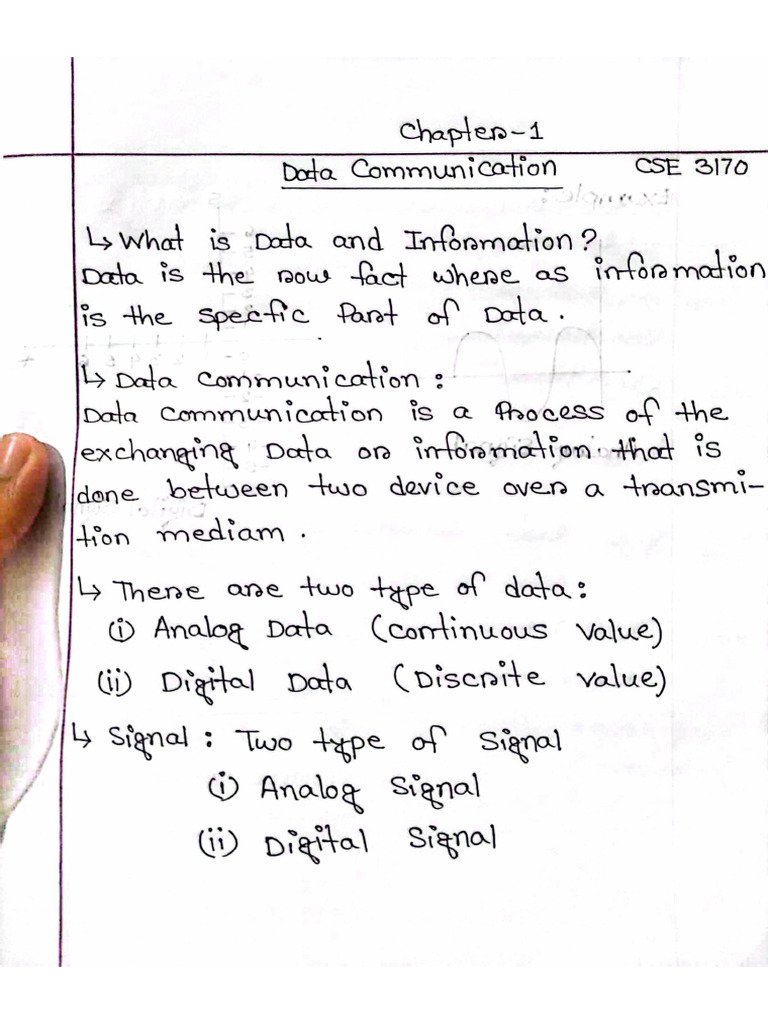 Chapter-1
Data Communication CSE 3170
↳ What is Data and Information?
Data is the row fact where as information
is the specfic Part of Data.
↳ Data Communication:
Data communication is a Process of the
exchanging Data or information that is
done between two device over a transmi-
tion mediam.
↳ There are two type of data:
(i) Analog Data (Continuous value)
(ii) Digital Data (Discrite value)
↳ Signal: Two type of signal
(i) Analog Signal
(ii) Digital Signal